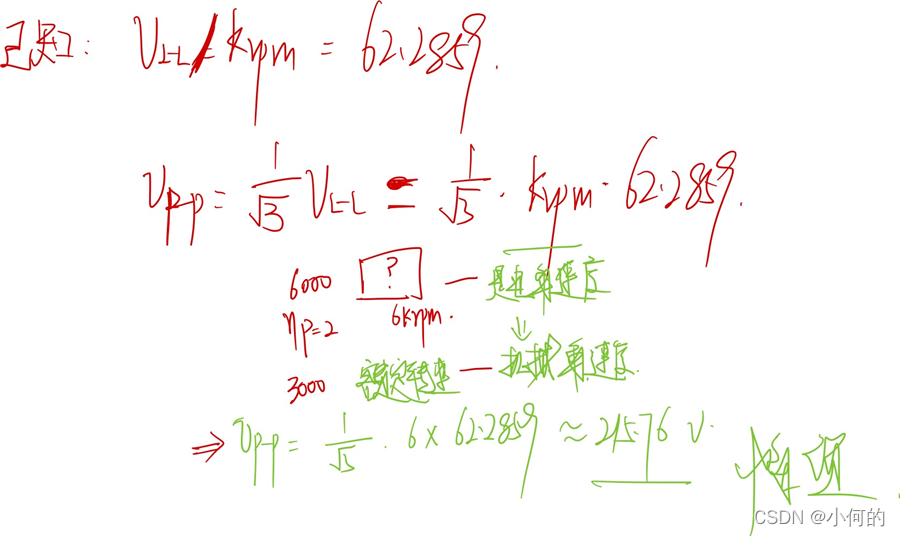 已知: V_{L-L}/krpm = 62.2859.
V_{P-P} = \frac{1}{\sqrt{3}} V_{L-L} = \frac{1}{\sqrt{3}} · krpm · 62.2859.
6000 ? — 是电角速度
n_p=2 6krpm.
⇓
3000 额定转速 — 机械角速度.
⇒ V_{P-P} = \frac{1}{\sqrt{3}} · 6 × 62.2859 ≈ 215.76 V.
CSDN @小何的